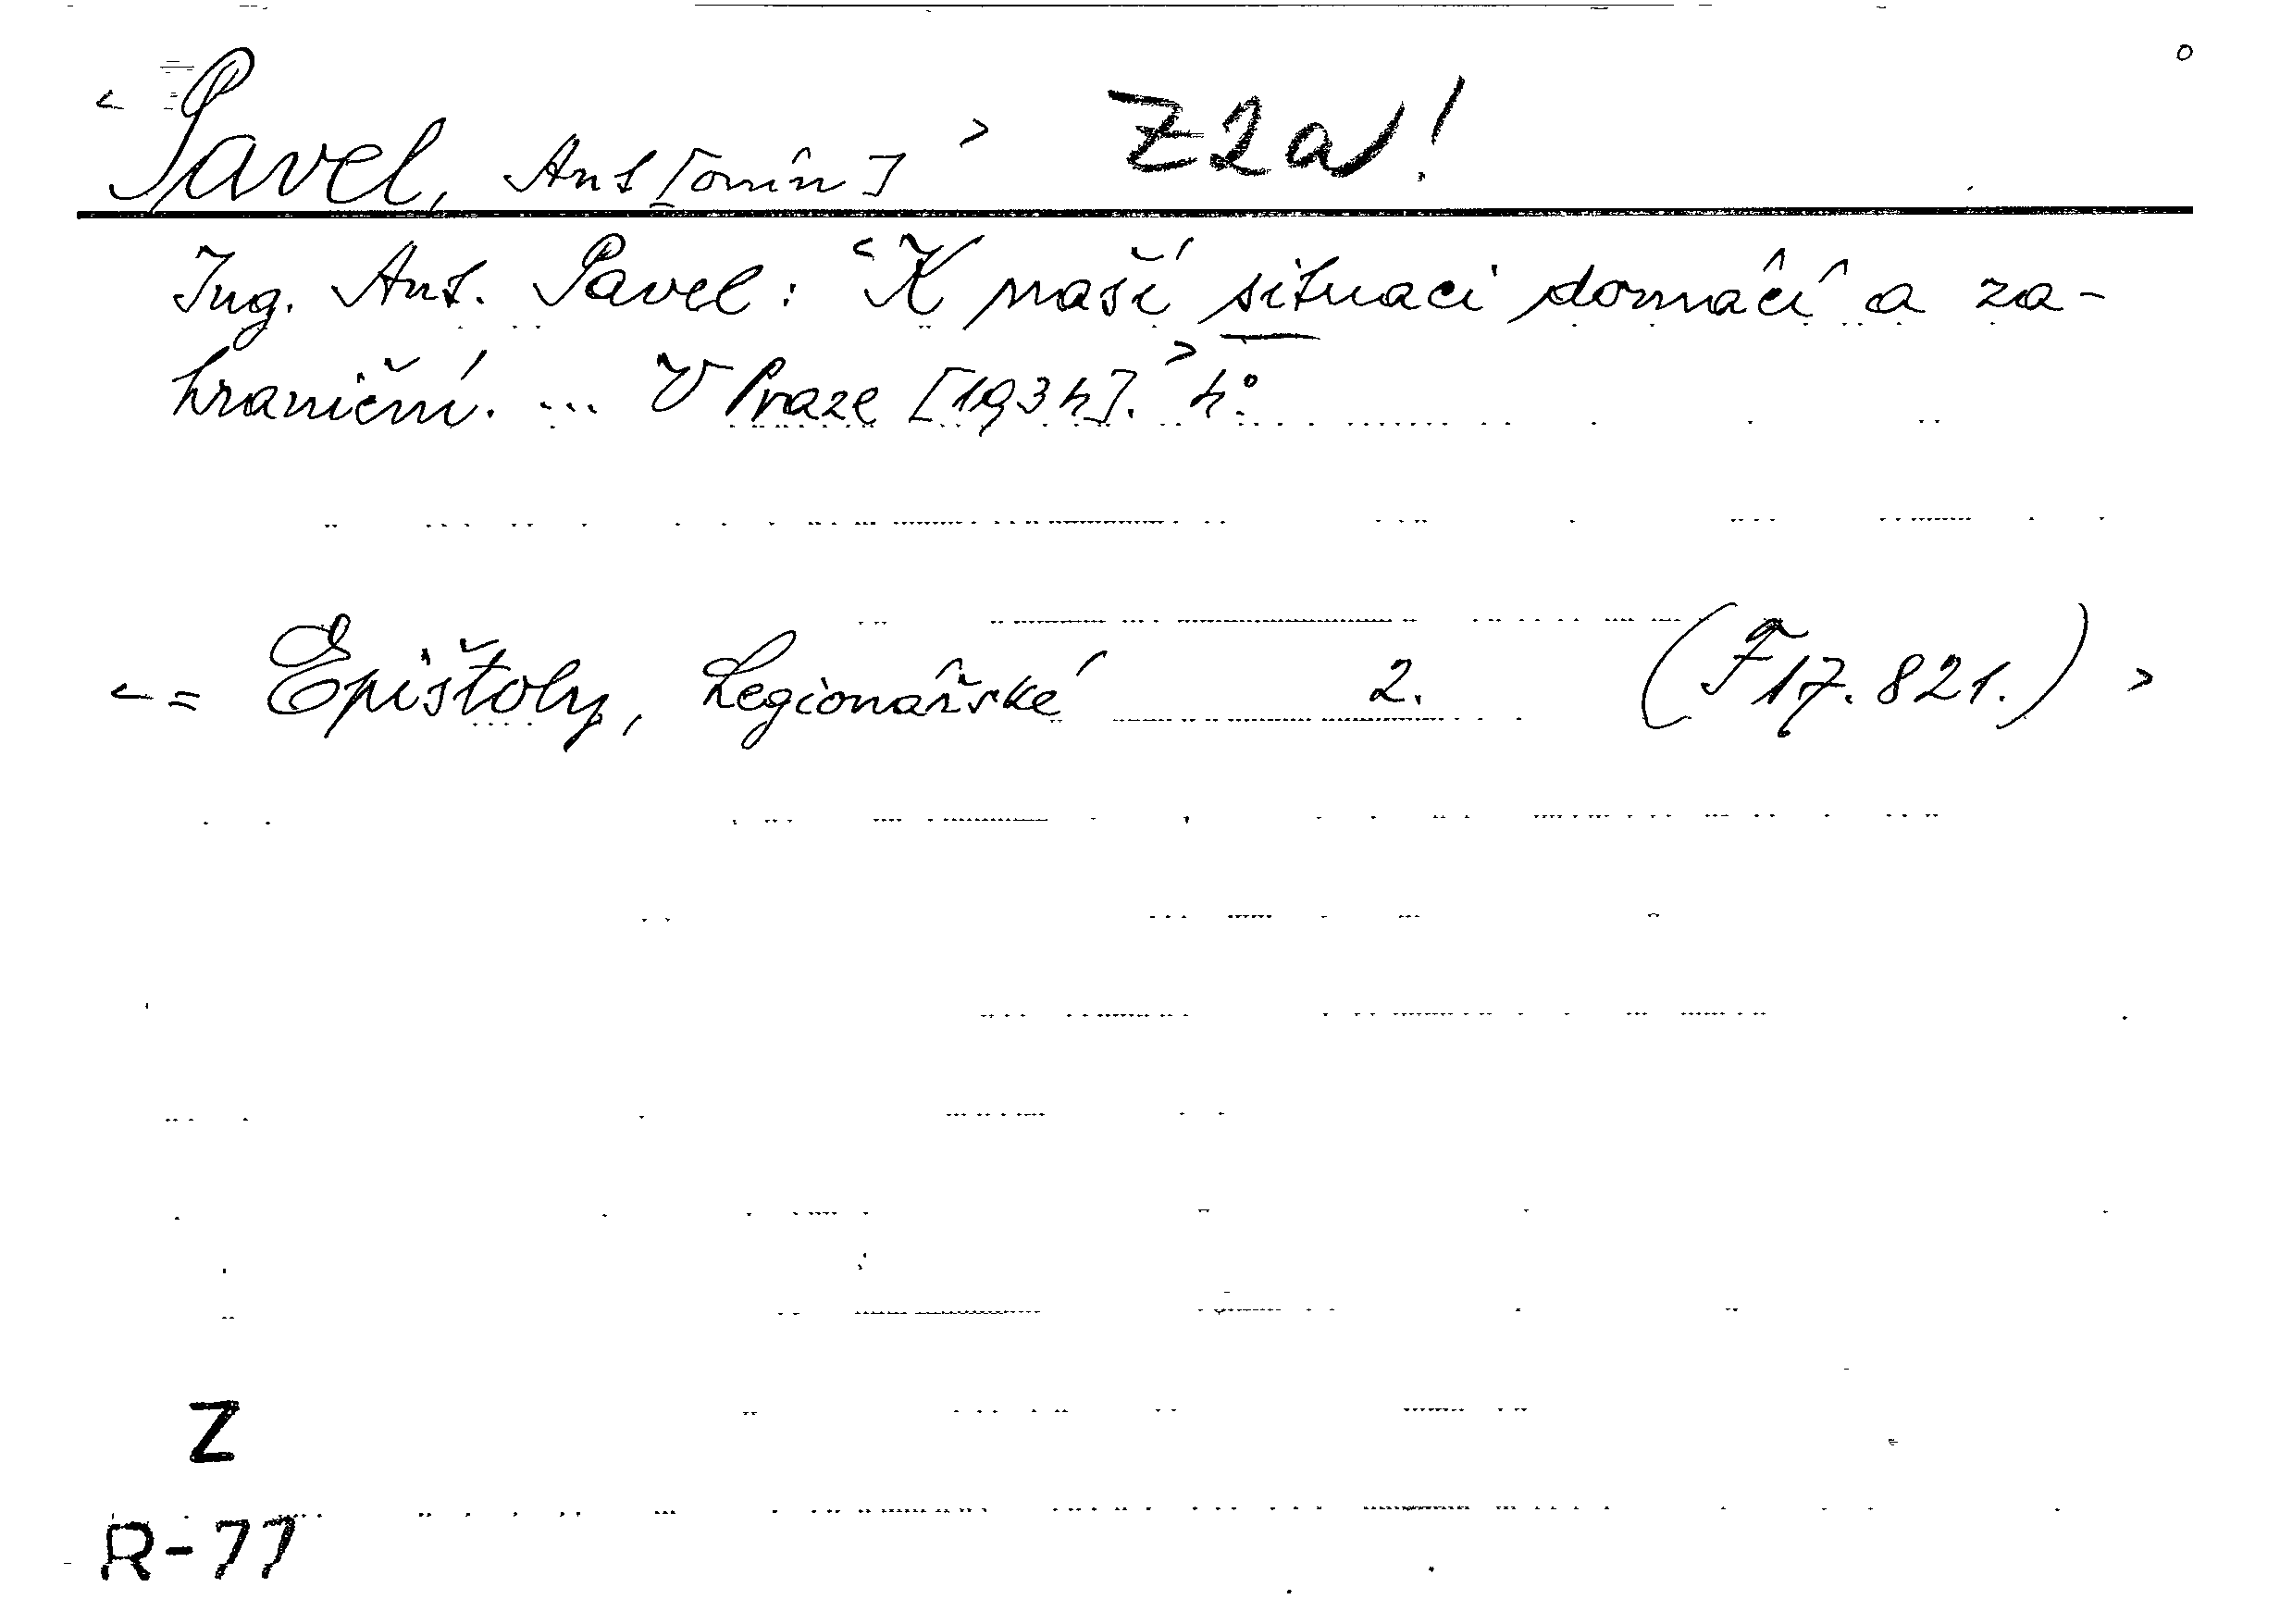 < Pavel, Ant[onín] > Z2a!
Ing. Ant. Pavel: < K naší situaci domácí a za-
hraniční. ... V Praze [1934]. > 4°.
< = Epištoly, Legionářské 2. (F 17.821.) >
Z
R-77